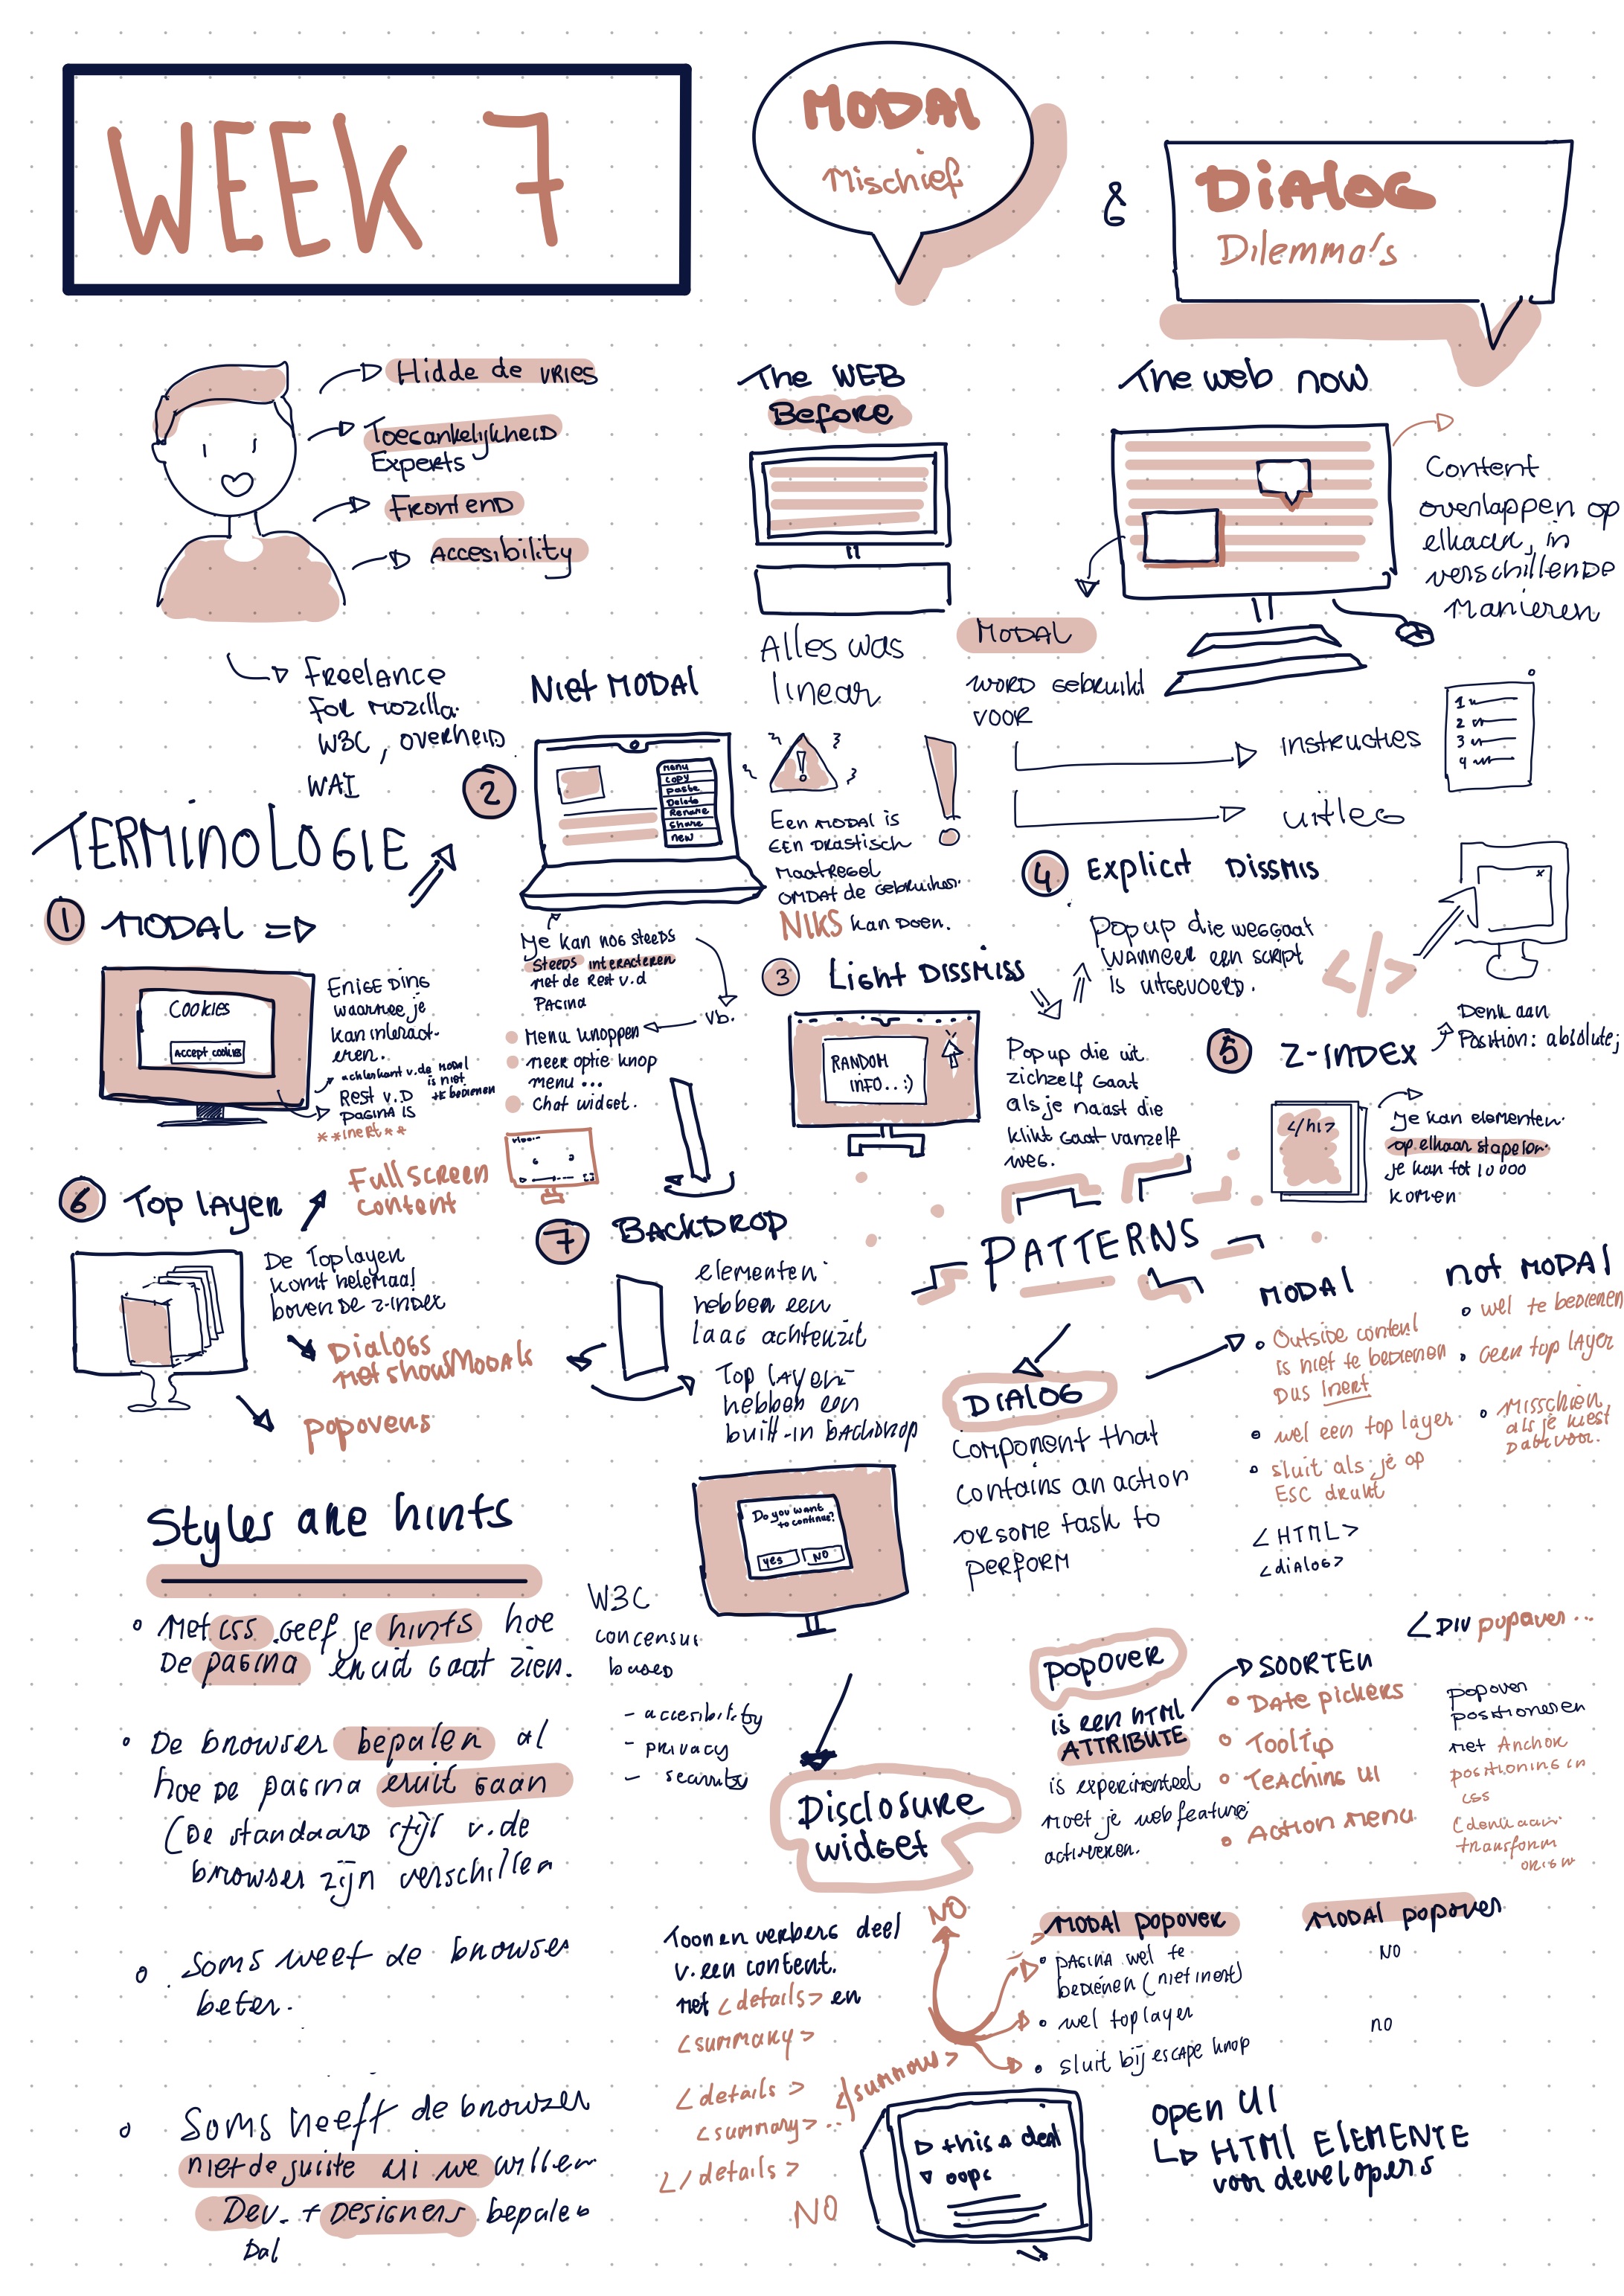 WEEK 7
MODAL
Mischief
&
DiALOG
Dilemma's
Hidde de VRies
Toegankelijkheid
Experts
Frontend
Accesibility
Freelance
For Mozilla.
W3C, overheid
WAI
The WEB
Before
Alles was
linear
The web now
Content
overlappen op
elkaar, in
verschillende
manieren
MODAL
WORD Gebruikt
VOOR
instructies
1
2
3
4
uitleg
TERMINOLOGIE
1 MODAL
Cookies
Accept cookies
Enige Ding
waarmee je
kan interact-
eren.
achterkant v.de modal
is niet
te bedienen
Rest v.D
pagina is
**inert**
2
Niet MODAL
Menu
copy
paste
Delete
Rename
share
new
Je kan nog steeds
steeds interacteren
met de Rest v.d
PAGINA
vb.
Menu knoppen
meer optie knop
menu ...
Chat widget.
Een MODAL is
EEN DRASTISCH
maatregel
OMDAT de Gebruiker
NIKS kan DOEN.
3 Light DISSMISS
RANDOM
INFO..:)
Pop up die uit
zichzelf gaat
als je naast die
klikt gaat vanzelf
weg.
4 Explicit DISSMIS
Pop up die weggaat
WANNEER een script
is uitgevoerd.
</>
5 Z-INDEX
Denk aan
Position: absolute;
</h1>
Je kan elementen
op elkaar stapelen.
je kan tot 10000
komen
6 Top LAYER
Full screen
content
De Top layer
komt helemaal
boven DE Z-index
Dialogs
met showModals
popovers
7 BACKDROP
elementen
hebben een
laag achteruit
Top LAYER
hebben een
built-in BACKDROP
Do you want
to continue?
yes
NO
PATTERNS
DIALOG
Component that
contains an action
or some task to
perform
MODAL
Outside content
is niet te bedienen
DUS Inert
wel een top layer
sluit als je op
ESC drukt
<HTML>
<dialog>
not MODAL
wel te bedienen
Geen top layer
Misschien
als je kiest
daarvoor.
Styles are hints
Met css geef je hints hoe
De pagina eruit gaat zien.
De browser bepalen al
hoe de pagina eruit gaan
(De standaard stijl v.de
browser zijn verschillen
Soms weet de browser
beter.
Soms heeft de browzer
niet de juiste UI we willen
Dev. + Designers bepalen
Dat
W3C
concensus
based
- accesibility
- privacy
- security
Disclosure
widget
Toon en verberg deel
v. een content.
met <details> en
<summary>
<details>
<summary> ... </summary>
</details>
NO
this a deal
oops
popover
is een HTML
ATTRIBUTE
is experimenteel
moet je web feature
activeren.
SOORTEN
Date pickers
Tooltip
Teaching UI
Action menu
<DIV popover...
popover
positioneren
met Anchor
positioning in
css
(denk aan
transform
origin
NO
MODAL popover
pagina wel te
bedienen (niet inert)
wel top layer
sluit bij escape knop
MODAL popover
NO
no
open UI
HTML ELEMENTE
voor developers